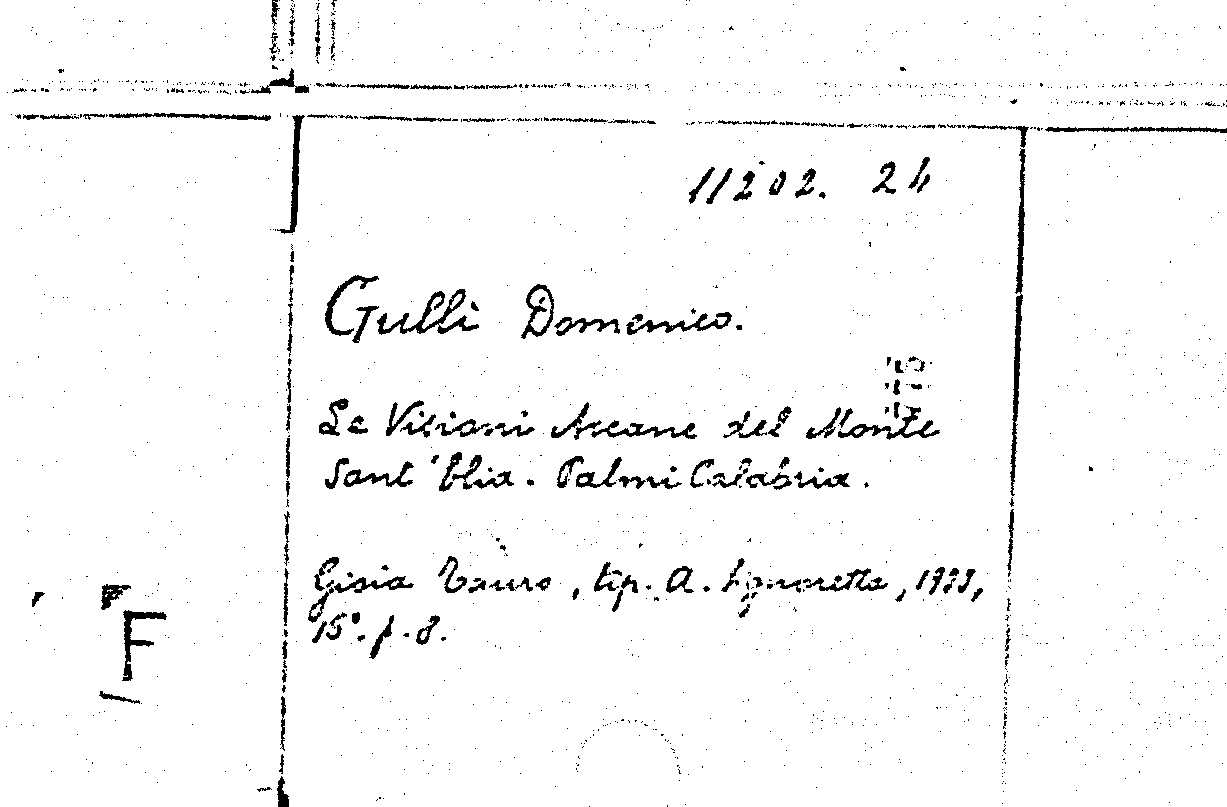 11202. 24
Gullì Domenico.
Le Visioni Arcane del Monte
Sant'Elia. Palmi Calabria.
Gioia Tauro, tip. A. 1933,
15°. p. 8.
F